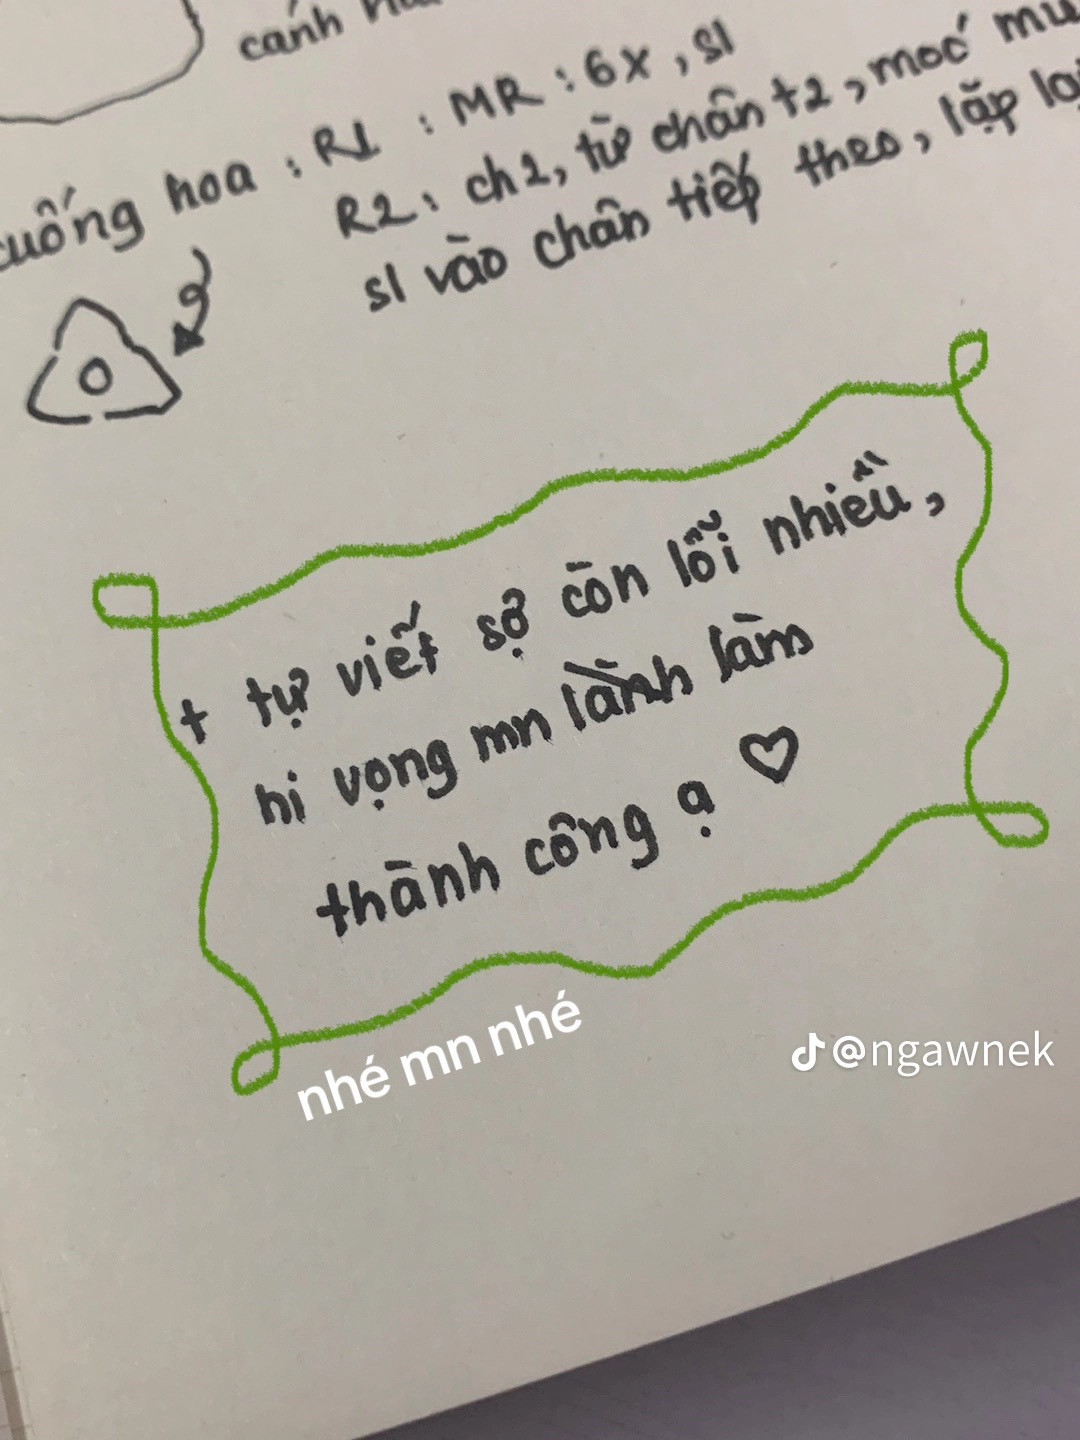 cánh
cuống hoa : R1 : MR : 6x , sl
R2 : ch2, từ chân t2 , móc
sl vào chân tiếp theo, lặp lại
+ tự viết sợ còn lỗi nhiều,
hi vọng mn làm
thành công ạ ♡
nhé mn nhé
@ngawnek